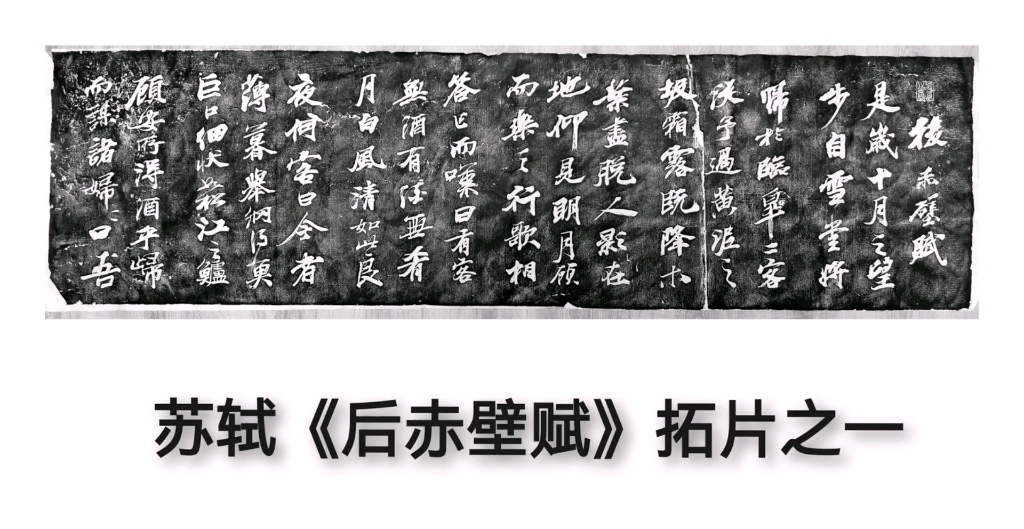 後赤壁賦
是歲十月之望
步自雪堂將
歸於臨皋二客
從予過黃泥之
坂霜露既降木
葉盡脫人影在
地仰見明月顧
而樂之行歌相
答已而嘆曰有客
無酒有酒無肴
月白風清如此良
夜何客曰今者
薄暮舉網得魚
巨口細狀如松江之鱸
顧安所得酒乎歸
而謀諸婦〻曰吾
苏轼《后赤壁赋》拓片之一